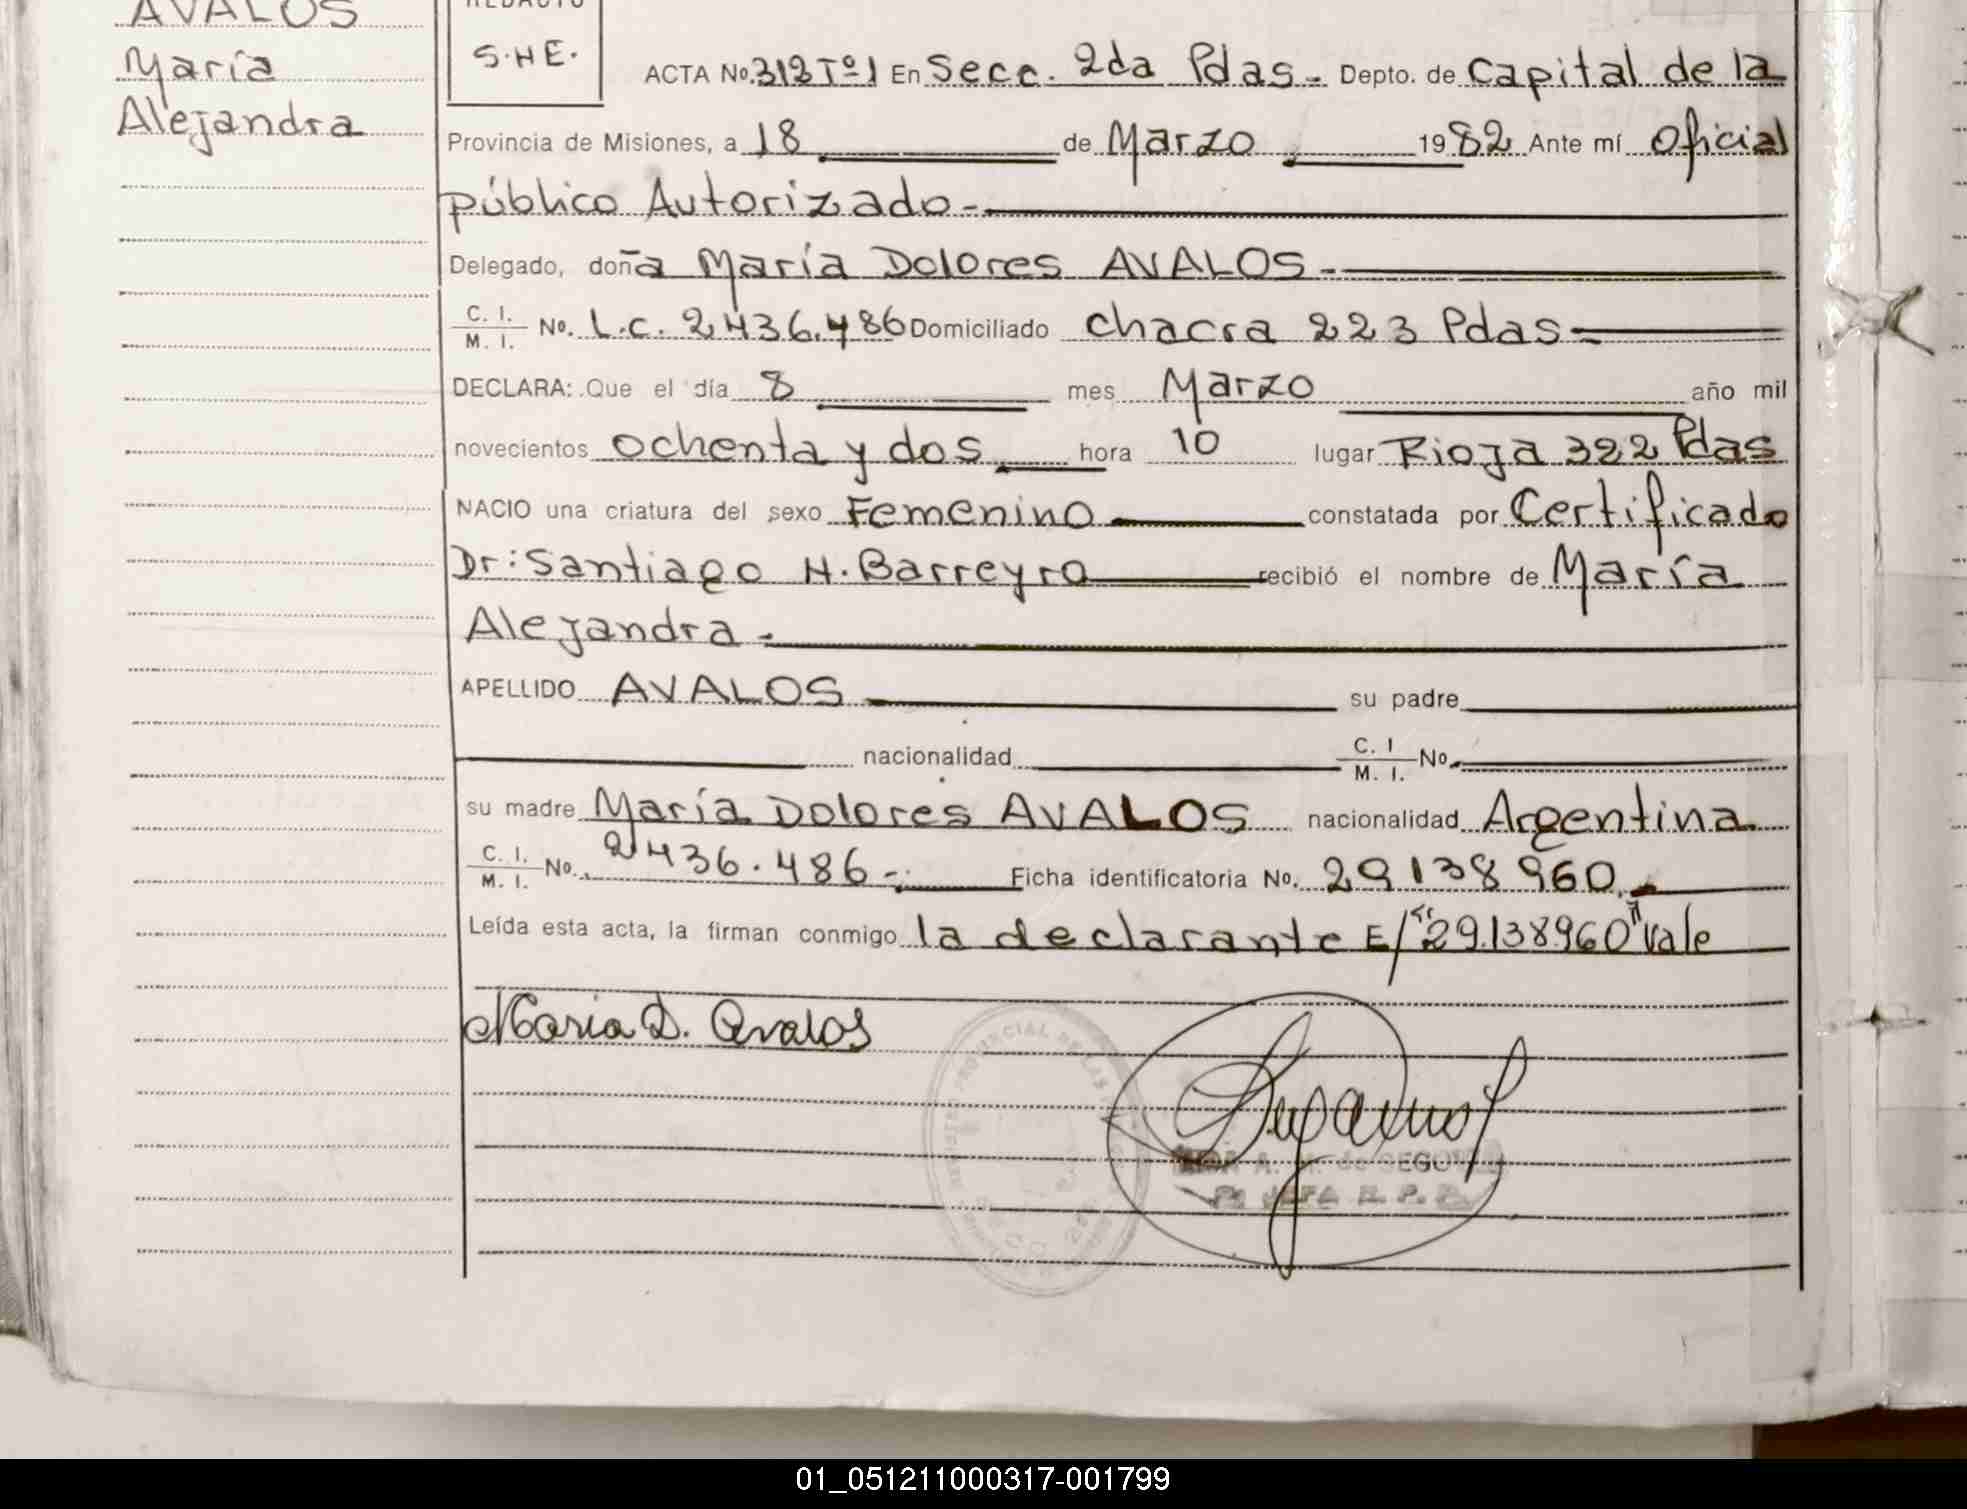 AVALOS
María
Alejandra
REDACTO
S.H.E.
ACTA No. 312 Tº 1 En Secc. 2da Pdas.- Depto. de Capital de la
Provincia de Misiones, a 18 de Marzo 1982 Ante mí Oficial
público Autorizado.-
Delegado, doña María Dolores AVALOS.-
C. I. / M. I. No. L.C. 2436.486 Domiciliado Chacra 223 Pdas
DECLARA: Que el día 8 mes Marzo año mil
novecientos ochenta y dos hora 10 lugar Rioja 322 Pdas
NACIO una criatura del sexo Femenino constatada por Certificado
Dr: Santiago H. Barreyro recibió el nombre de María
Alejandra.
APELLIDO AVALOS su padre
nacionalidad C. I / M. I. No.
su madre María Dolores AVALOS nacionalidad Argentina
C. I. / M. I. No. 2436.486-. Ficha identificatoria No. 29138960.-
Leída esta acta, la firman conmigo la declarante E/"29.138.960" Vale
Maria D. Avalos
de SEGOVIA
JEFA R. P. P.
01_051211000317-001799